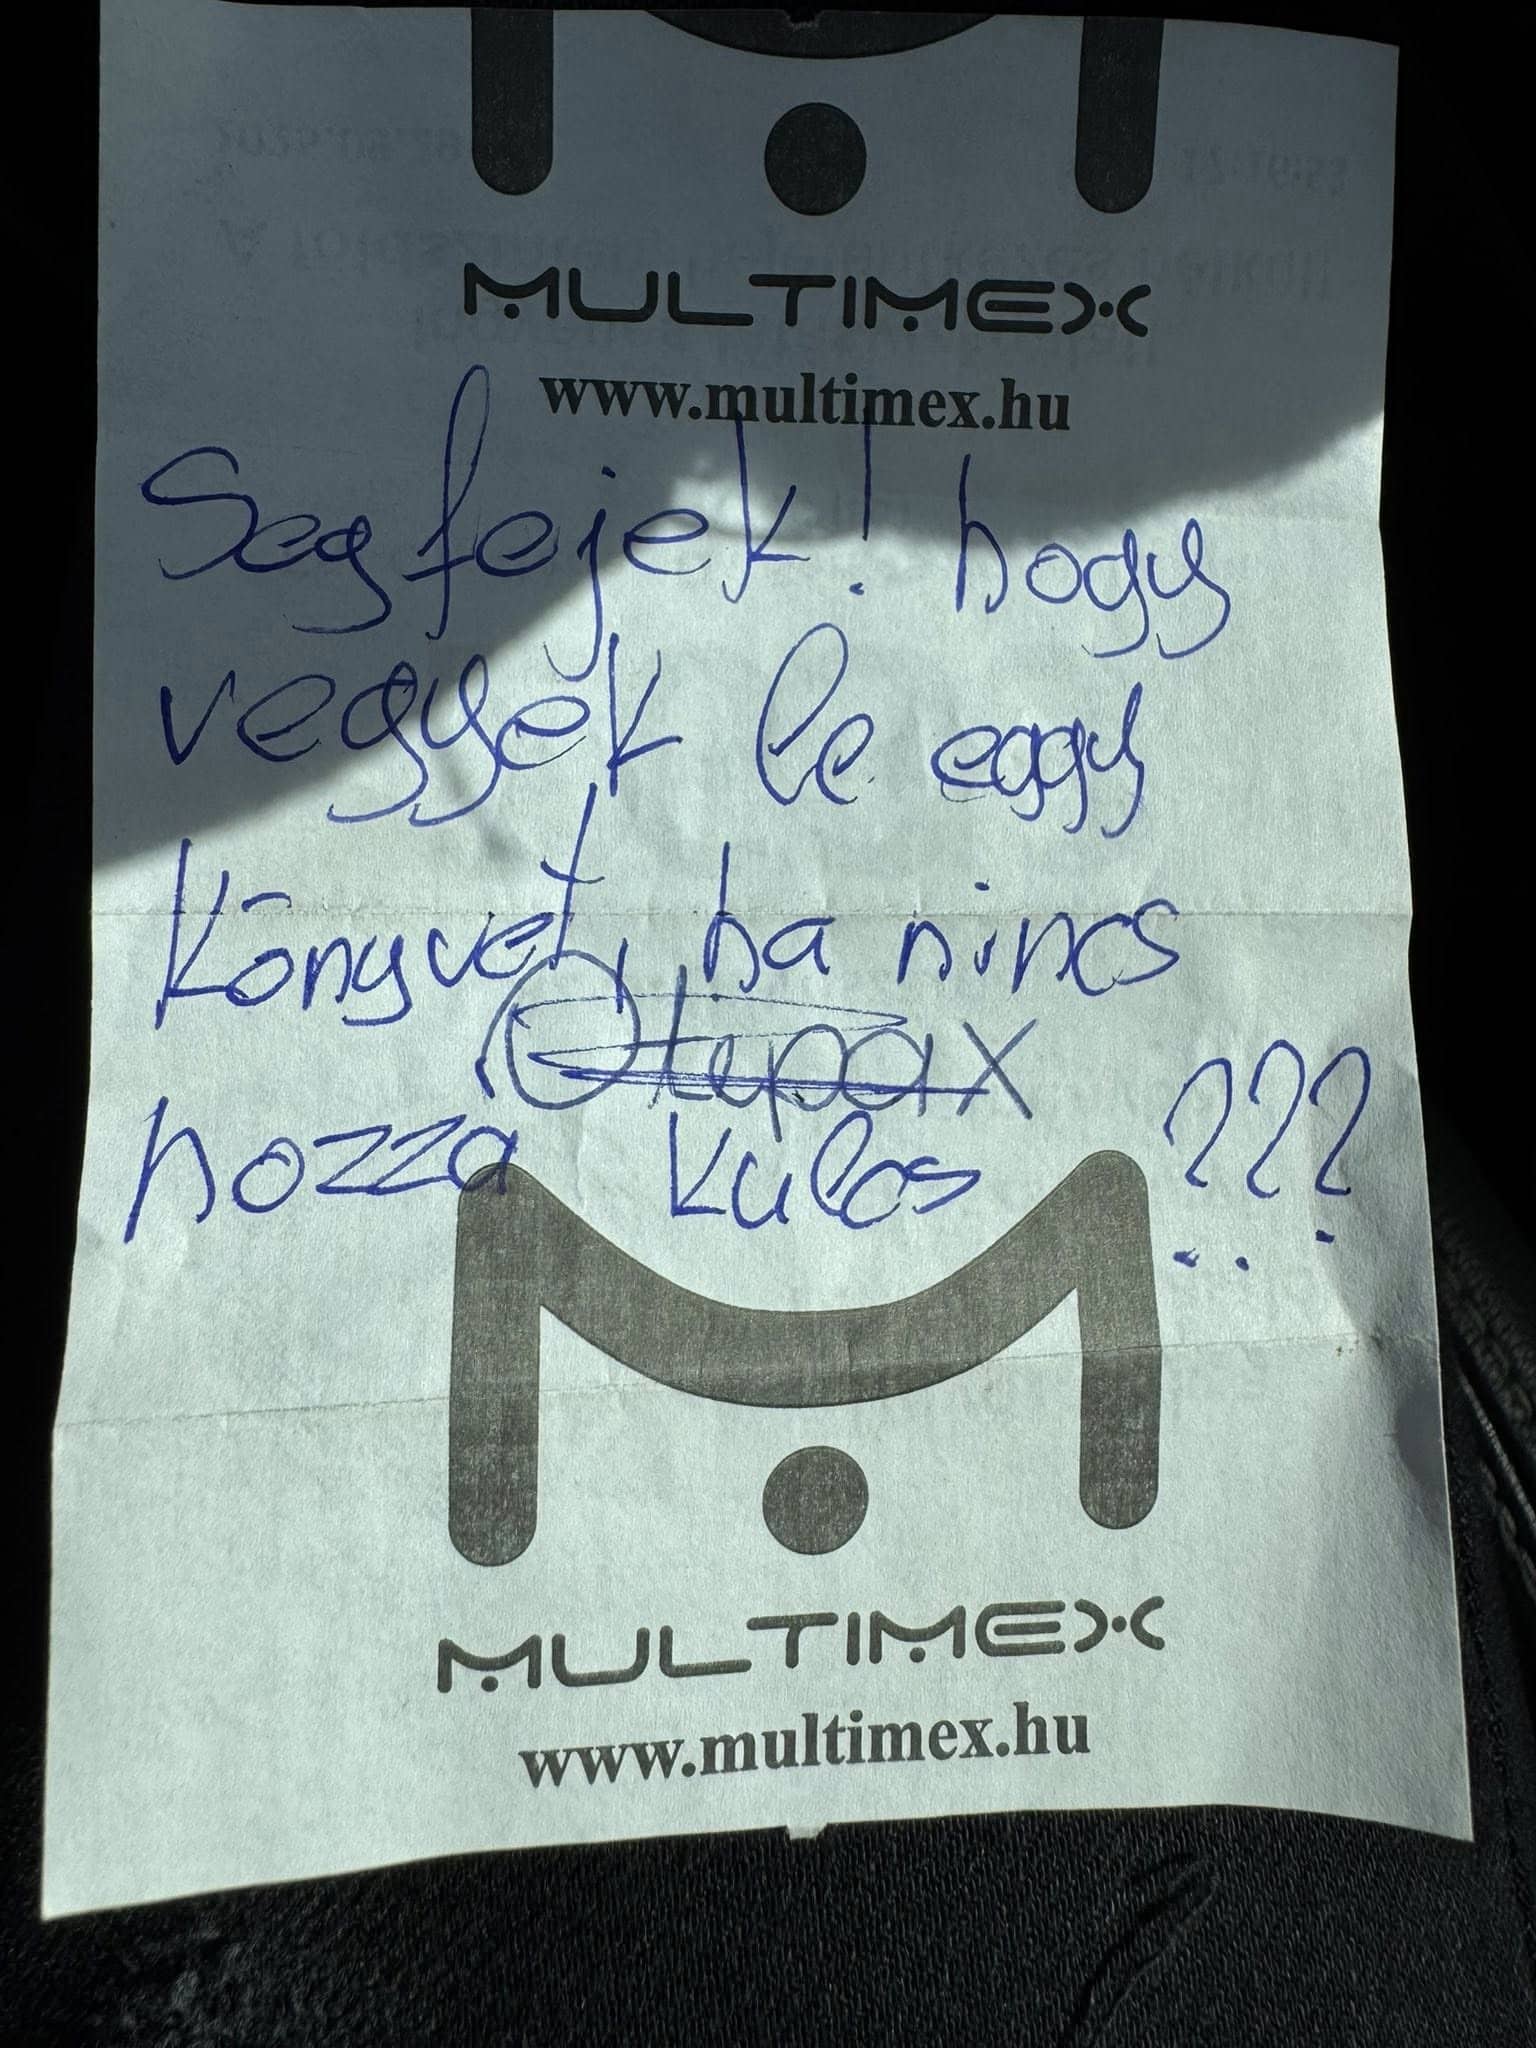 MULTIMEX
www.multimex.hu
Segfejek! hogy
vegyek le eggy
könyvet, ha nincs
Otipax
hozza kulcs ???
MULTIMEX
www.multimex.hu